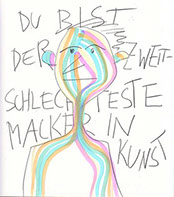 DU BIST
DER ZWEIT-
SCHLECHTESTE
MACKER IN
KUNST